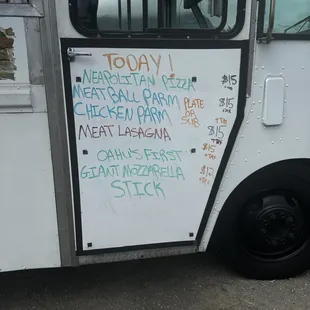 TODAY!
NEAPOLITAN PIZZA $15
MEATBALL PARM PLATE OR SUB $15
CHICKEN PARM $15
MEAT LASAGNA $15
OAHU'S FIRST
GIANT MOZZARELLA
STICK